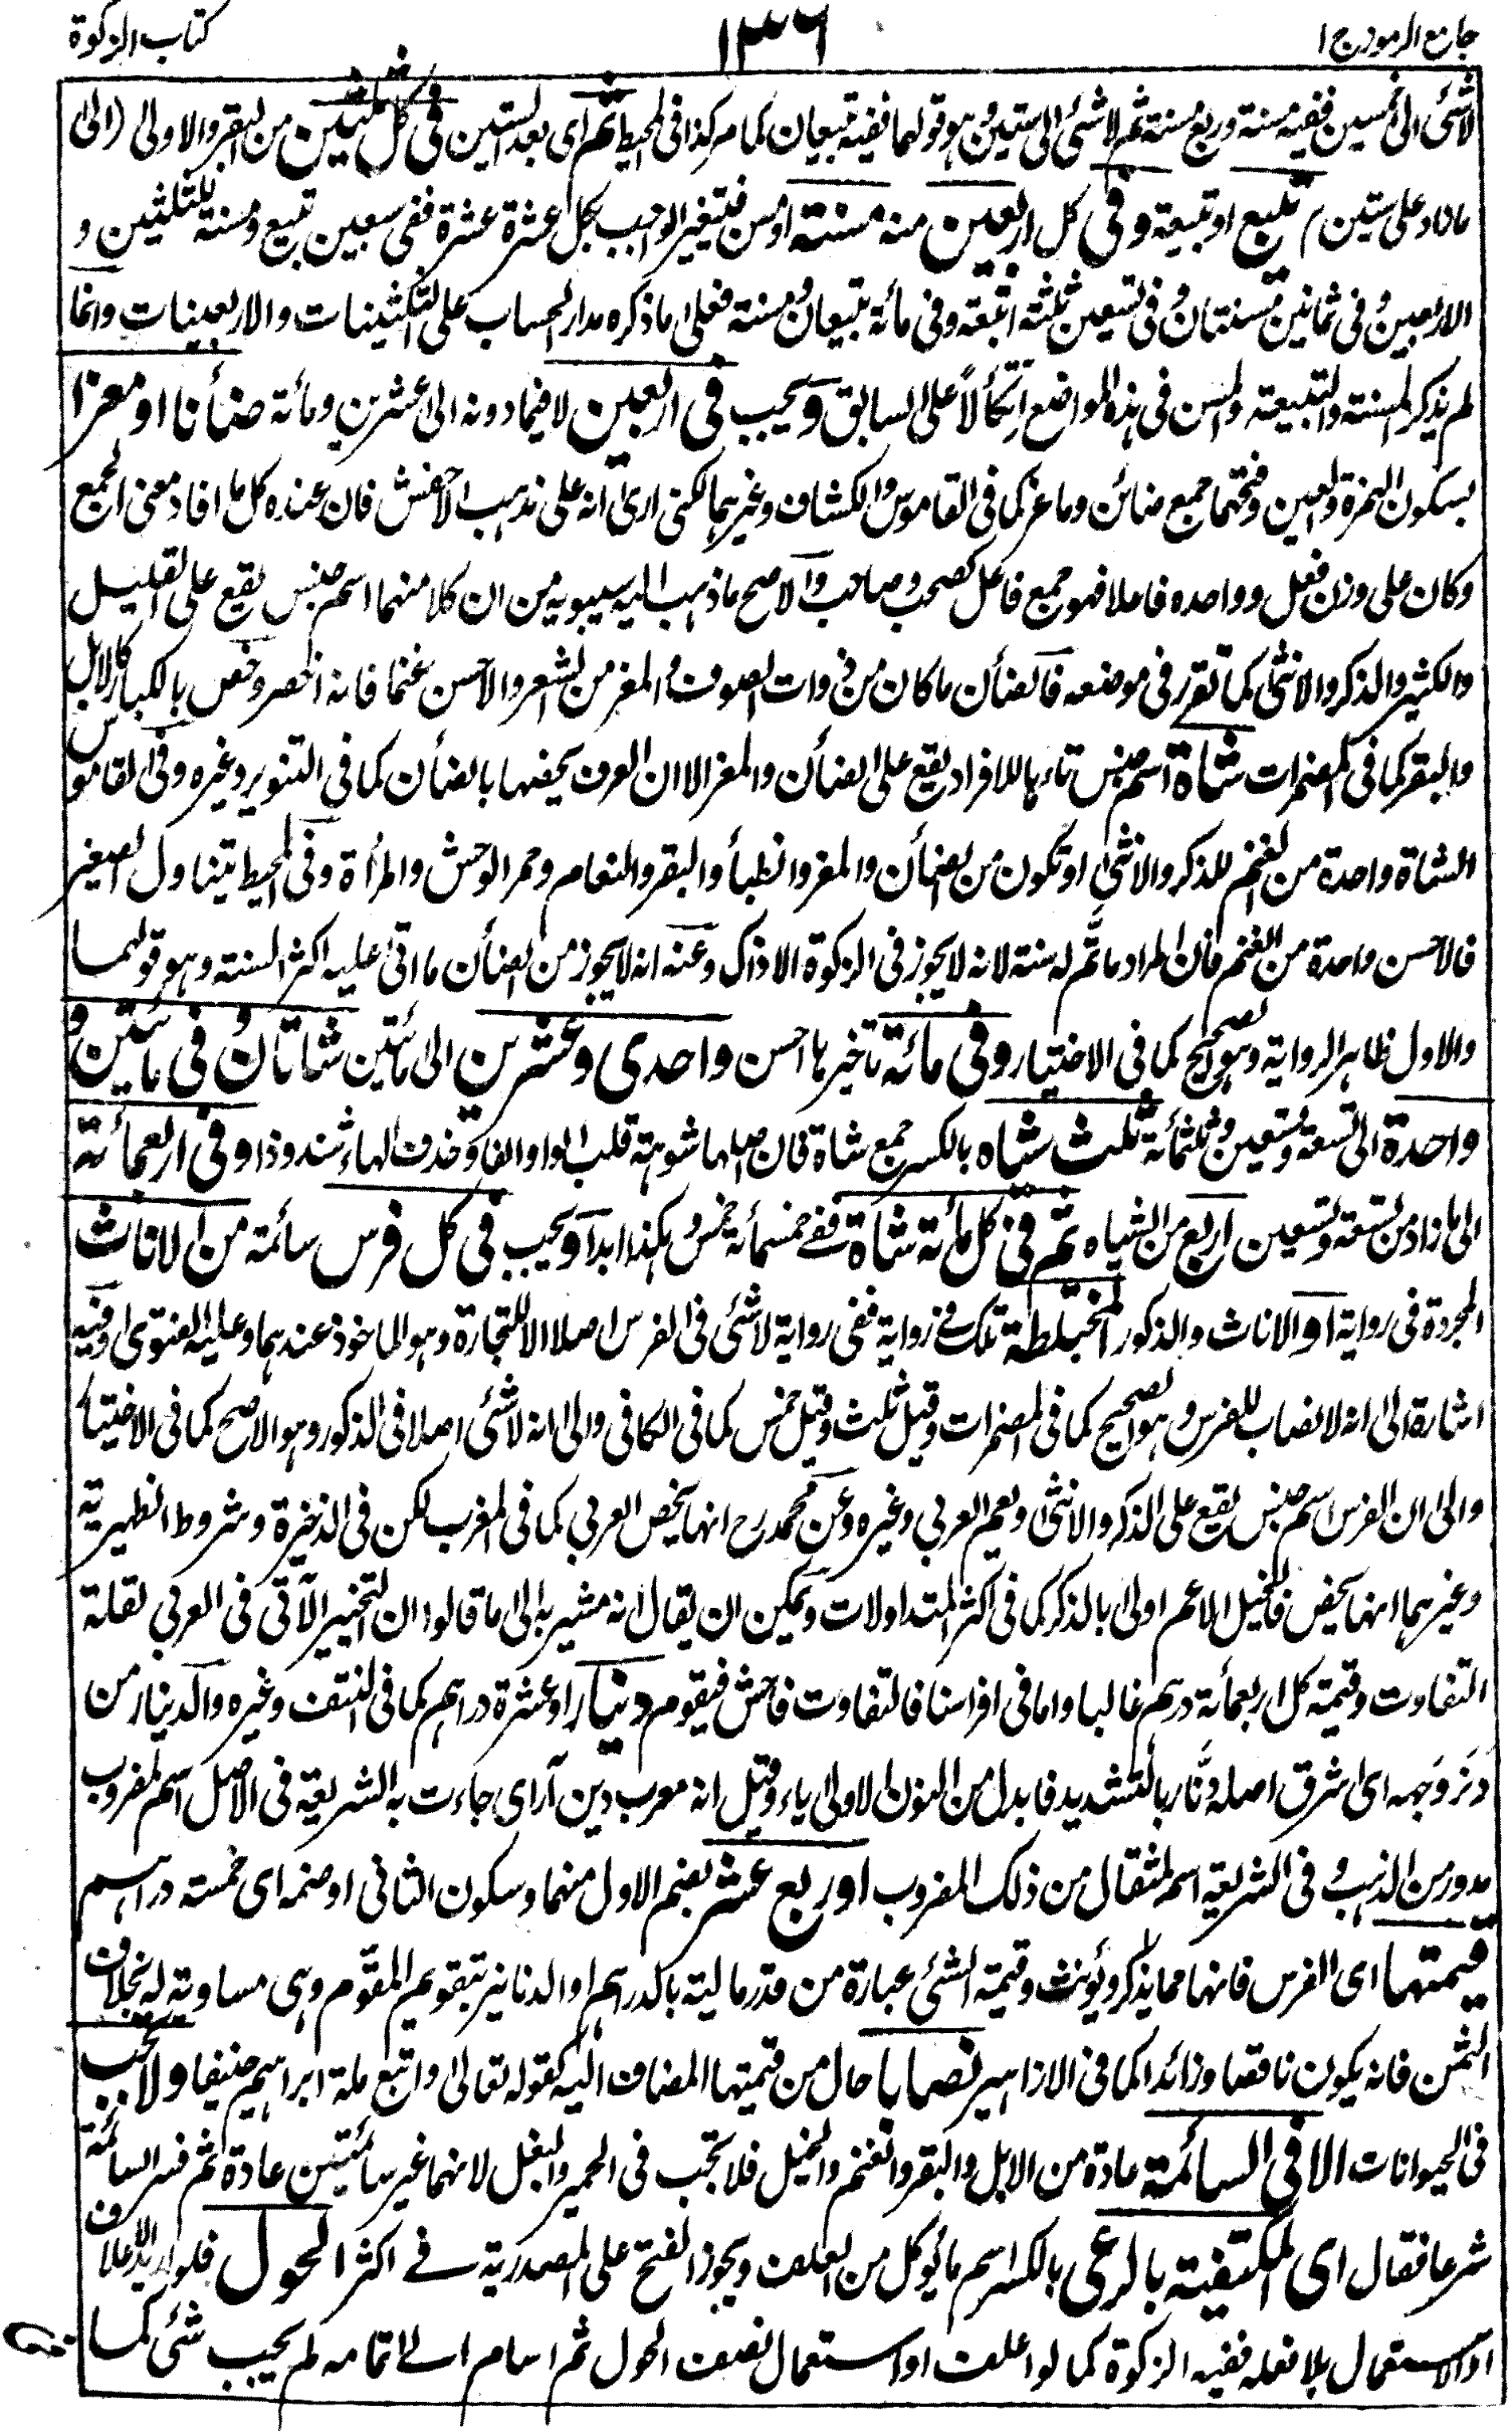 جامع الرموز ج ١
١٣٦
كتاب الزكوة
لا شئ الى خمسين ففيه مسنة وربع مسنة ثم لا شئ الى ستين وهو قولهما ففيه تبيعان كما مر كذا فى المحيط ثم اى بعد الستين فى كل ثلثين من البقر والاولى (الى
ما زاد على ستين) تبيع او تبيعة وفى كل اربعين منه مسنة او مسن فيتغير الواجب بكل عشرة عشرة ففى سبعين تبيع ومسنة للثلثين و
الاربعين وفى ثمانين مسنتان وفى تسعين ثلثة اتبعة وفى مائة تبيعان ومسنة فعلى ما ذكره مدار الحساب على الثلثينات والاربعينات وانما
لم يذكر المسنة والتبيعة والمسن فى هذه المواضع اتكالا على السابق ويجب فى اربعين لا فيما دونه الى عشرين ومائة ضأنا او معزا
بسكون الهمزة والعين وفتحهما جمع ضائن وماعز كما فى القاموس والكشاف وغيرهما لكنى ارى انه على مذهب الاخفش فان عنده كل ما افاد معنى الجمع
وكان على وزن فعل وواحده فاعلا فهو جمع فاعل كصحب وصاحب والاصح ما ذهب اليه سيبويه من ان كلا منهما اسم جنس يقع على القليل
والكثير والذكر والانثى كما تقرر فى موضعه فالضأن ما كان من ذوات الصوف والمعز من الشعر والاحسن غنما فانه اخصر وخص بالكبار كالابل
والبقر كما فى المضمرات شاة اسم جنس تاءها للافراد يقع على الضأن والمعز الا ان العرف يخصها بالضأن كما فى التنوير وغيره وفى القاموس
الشاة واحدة من الغنم للذكر والانثى او تكون من الضأن والمعز والظبأ والبقر والنعام وحمر الوحش والمرأة وفى المحيط يتناول الصغير
فالاحسن واحدة من الغنم فان المراد ما تم له سنة لانه لا يجوز فى الزكوة الا ذاك وعنه انه لا يجوز من الضأن ما اتى عليه اكثر السنة وهو قولهما
والاول ظاهر الرواية وهو الصحيح كما فى الاختيار وفى مائة تاخيرها احسن واحدى وعشرين الى مأتين شاتان وفى مأتين و
واحدة الى تسعة وتسعين وثلثمائة ثلث شياه بالكسر جمع شاة فان اصلها شوهة قلب الواو الفا وحذف الهاء شذوذا وفى اربعمائة
الى ما زاد من تسعة وتسعين اربع من الشياه ثم فى كل مائة شاة ففى خمسمائة خمس وهكذا ابدا ويجب فى كل فرس سائمة من الاناث
المجردة فى رواية او الاناث والذكور المختلطة تلك فى رواية ففى رواية لا شئ فى الفرس اصلا الا للتجارة وهو الماخوذ عندهما وعليه الفتوى وفيه
اشارة الى انه لا نصاب للفرس وهو الصحيح كما فى المضمرات وقيل ثلث وقيل خمس كما فى الكافى والى انه لا شئ اصلا فى الذكور وهو الاصح كما فى الاختيار
والى ان الفرس اسم جنس يقع على الذكر والانثى ويعم العربى وغيره وعن محمد رح انها يخص العربى كما فى المغرب لكن فى الذخيرة وشروط الظهيرية
وغيرهما انها يخص فالخيل الاعم اولى بالذكر كما فى اكثر المتداولات ويمكن ان يقال انه مشير به الى ما قالوا ان التخيير الآتى فى العربى لقلة
التفاوت وقيمة كل اربعمائة درهم غالبا واما فى افراسنا فالتفاوت فاحش فيقوم دينار او عشرة دراهم كما فى النتف وغيره والدينار من
دَنَّر وَجهه اى اشرق اصله دنّار بالتشديد فابدل من النون الاولى ياء وقيل انه معرب دين آر اى جاءت به الشريعة فى الاصل اسم لمضروب
مدور من الذهب وفى الشريعة اسم لمثقال من ذلك المضروب او ربع عشر بضم الاول منهما وسكون الثانى او ضمه اى خمسة دراهم
قيمتها اى الفرس فانها مما يذكر ويؤنث وقيمة الشئ عبارة من قدر مالية بالدراهم او الدنانير بتقويم المقوّم وهى مساوية له بخلاف
الثمن فانه يكون ناقصا وزائدا كما فى الازاهير نصابا حال من قيمتها المضاف اليه كقوله تعالى واتبع ملة ابراهيم حنيفا ولا تجب
فى الحيوانات الا فى السائمة عادة من الابل والبقر والغنم والخيل فلا تجب فى الحمير والبغل لانهما غير سائمتين عادة ثم فسر السائمة
شرعا فقال اى المكتفية بالرعى بالكسر اسم ما يؤكل من العلف ويجوز الفتح على المصدرية فى اكثر الحول فلو اريد الاعلاف
او الاستعمال بلا فعله ففيه الزكوة كما لو اعلف او استعمال نصف الحول ثم اسام الى اتمامه لم يجب شئ كما